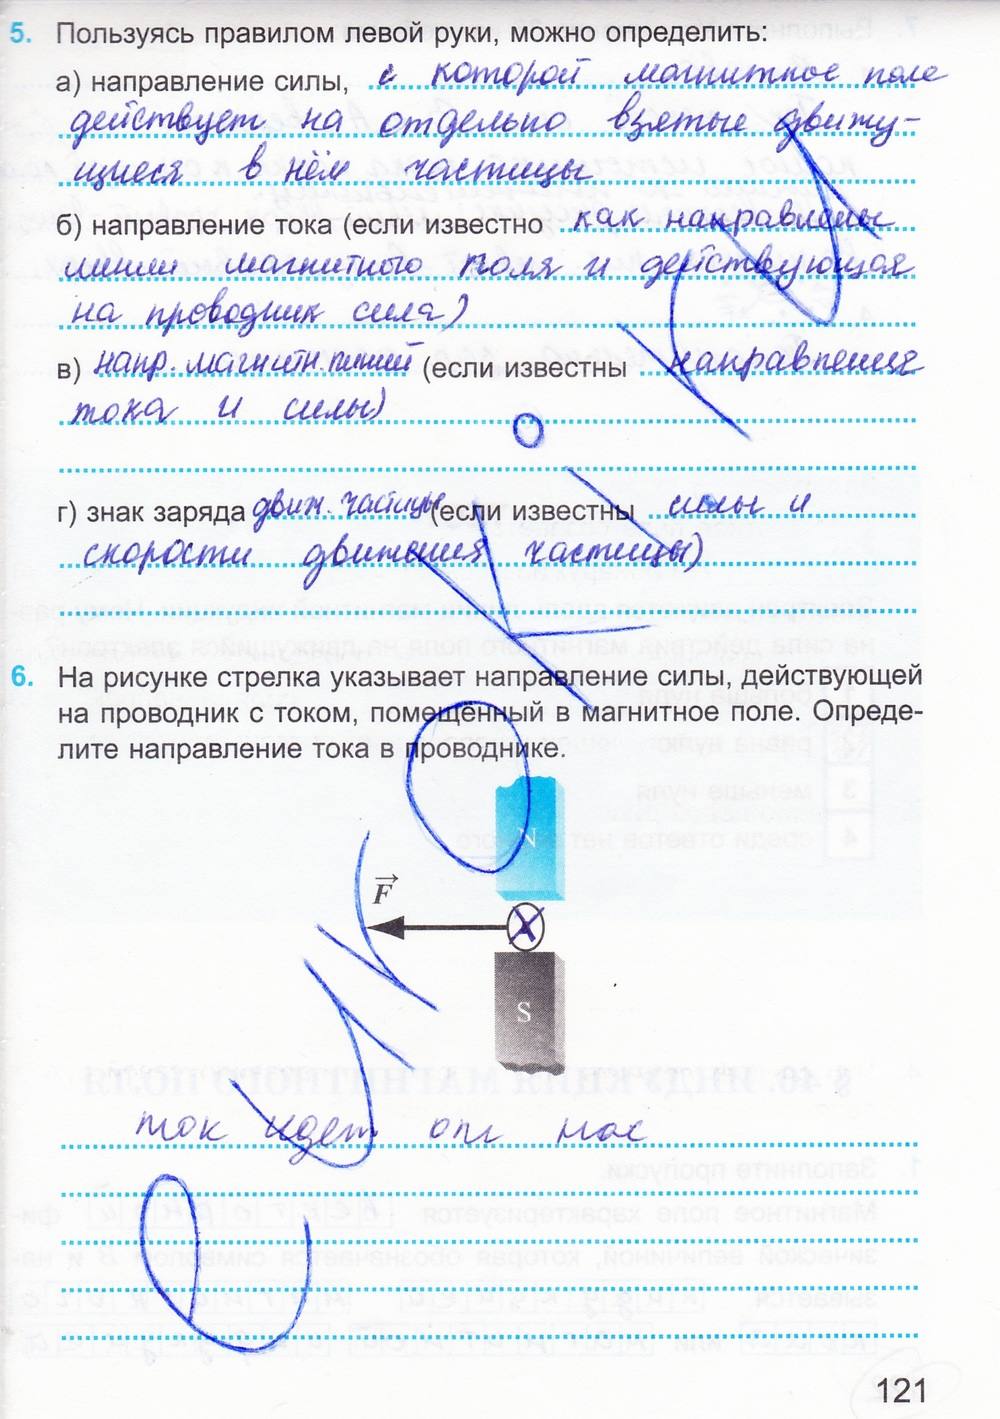 5. Пользуясь правилом левой руки, можно определить:
а) направление силы, с которой магнитное поле
действует на отдельно взятые движу-
щиеся в нём частицы
б) направление тока (если известно как направлены
линии магнитного поля и действующая
на проводник сила)
в) напр. магнитн. линий (если известны направления
тока и силы)
г) знак заряда движ. частицы (если известны силы и
скорости движения частицы)
6. На рисунке стрелка указывает направление силы, действующей
на проводник с током, помещённый в магнитное поле. Опреде-
лите направление тока в проводнике.
N
F
S
ток идет от нас
121